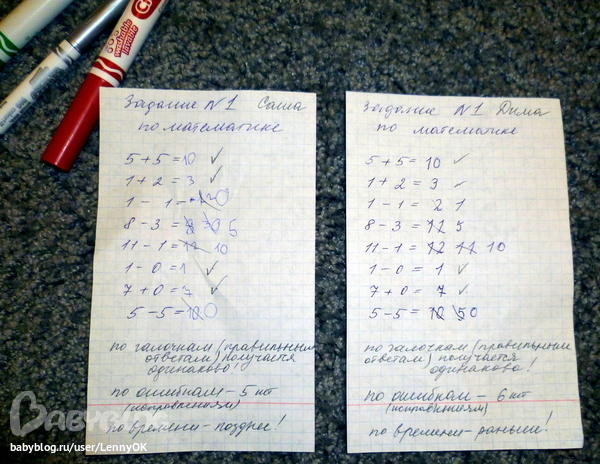 Задание №1 Саша
по математике
5+5=10 ✓
1+2=3 ✓
1-1=
8-3= 5
11-1=12 10
1-0=1 ✓
7+0=7 ✓
5-5=10 0
по галочкам (правильным
ответам) получается
одинаково!
по ошибкам - 5 шт
(исправлениям)
по времени - позднее!
Задание №1 Дима
по математике
5+5=10 ✓
1+2=3 ✓
1-1= 2 1
8-3=12 5
11-1=12 11 10
1-0=1 ✓
7+0=7 ✓
5-5=10 5 0
по галочкам (правильным
ответам) получается
одинаково!
по ошибкам - 6 шт
(исправлениям)
по времени - раньше!
washable
babyblog.ru/user/LennyOK